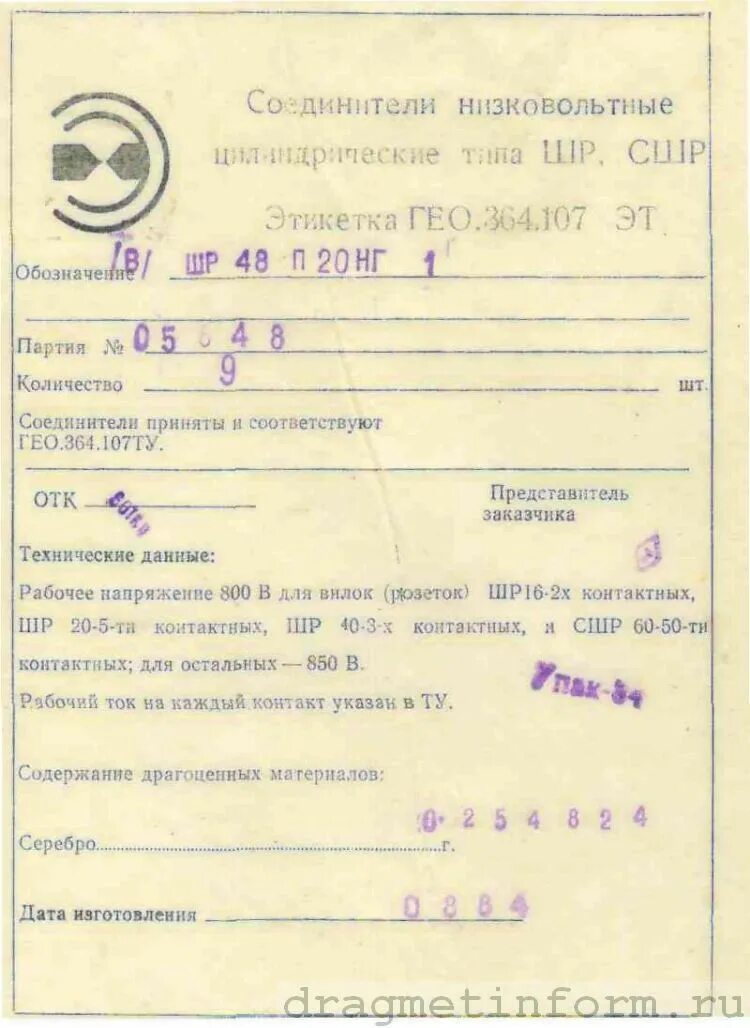 Соединители низковольтные
цилиндрические типа ШР, СШР
Этикетка ГЕО.364.107 ЭТ
Обозначение /В/ ШР 48 П 20НГ 1
Партия № 05 48
Количество 9 шт.
Соединители приняты и соответствуют
ГЕО.364.107ТУ.
ОТК
Представитель
заказчика
Технические данные:
Рабочее напряжение 800 В для вилок (розеток) ШР16-2х контактных,
ШР 20-5-ти контактных, ШР 40-3-х контактных, и СШР 60-50-ти
контактных; для остальных — 850 В.
Упак-34
Рабочий ток на каждый контакт указан в ТУ.
Содержание драгоценных материалов:
0.254824
Серебро г.
Дата изготовления 0884
dragmetinform.ru